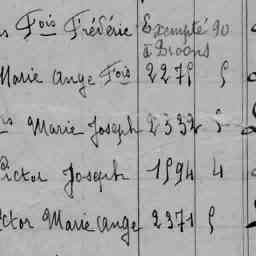 s Fois Frédéric Exempté 90
à Droons
Marie Ange Fois 2275 5
is Marie Joseph 2332 5
Victor Joseph 1594 4
ictor Marie Ange 2371 5